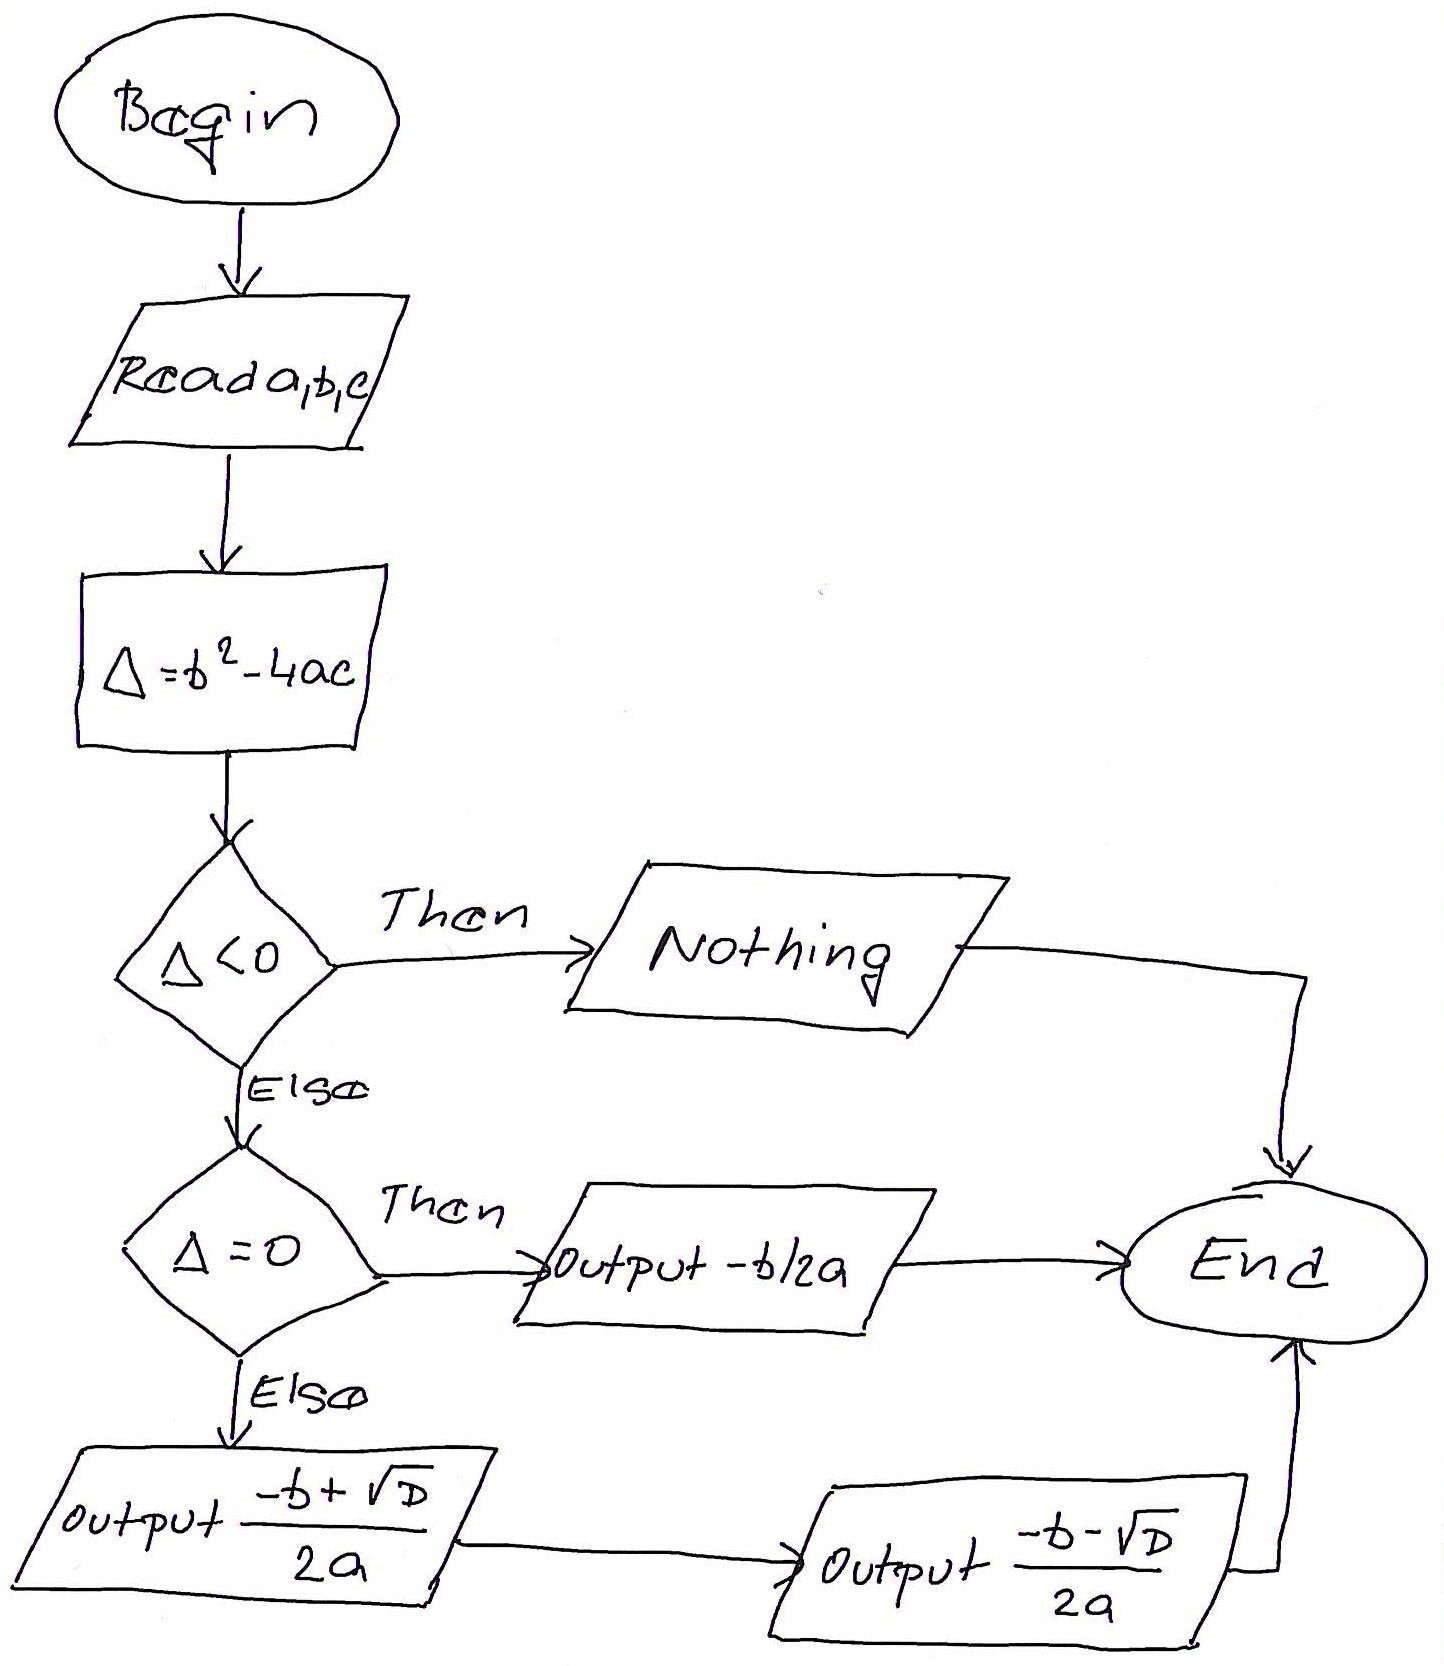 Begin
Read a,b,c
Δ=b²-4ac
Δ<0
Then
Nothing
Else
Δ=0
Then
Output -b/2a
End
Else
Output (-b+√D)/2a
Output (-b-√D)/2a